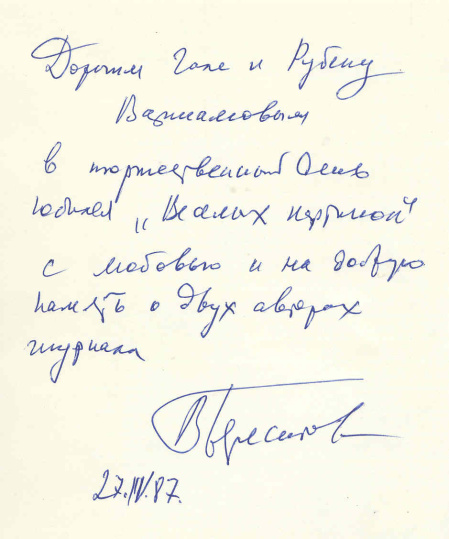 Дорогим Гале и Рубену
Варшамовым
в торжественный день
юбилея „Веселых картинок"
с любовью и на добрую
память о двух авторах
журнала
В Берестов
27.IV.87.